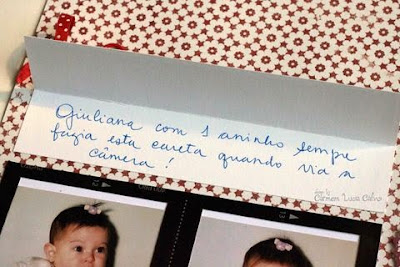 Giuliana com 1 aninho sempre
fazia esta careta quando via a
câmera!
Carmem Lucia Calvo